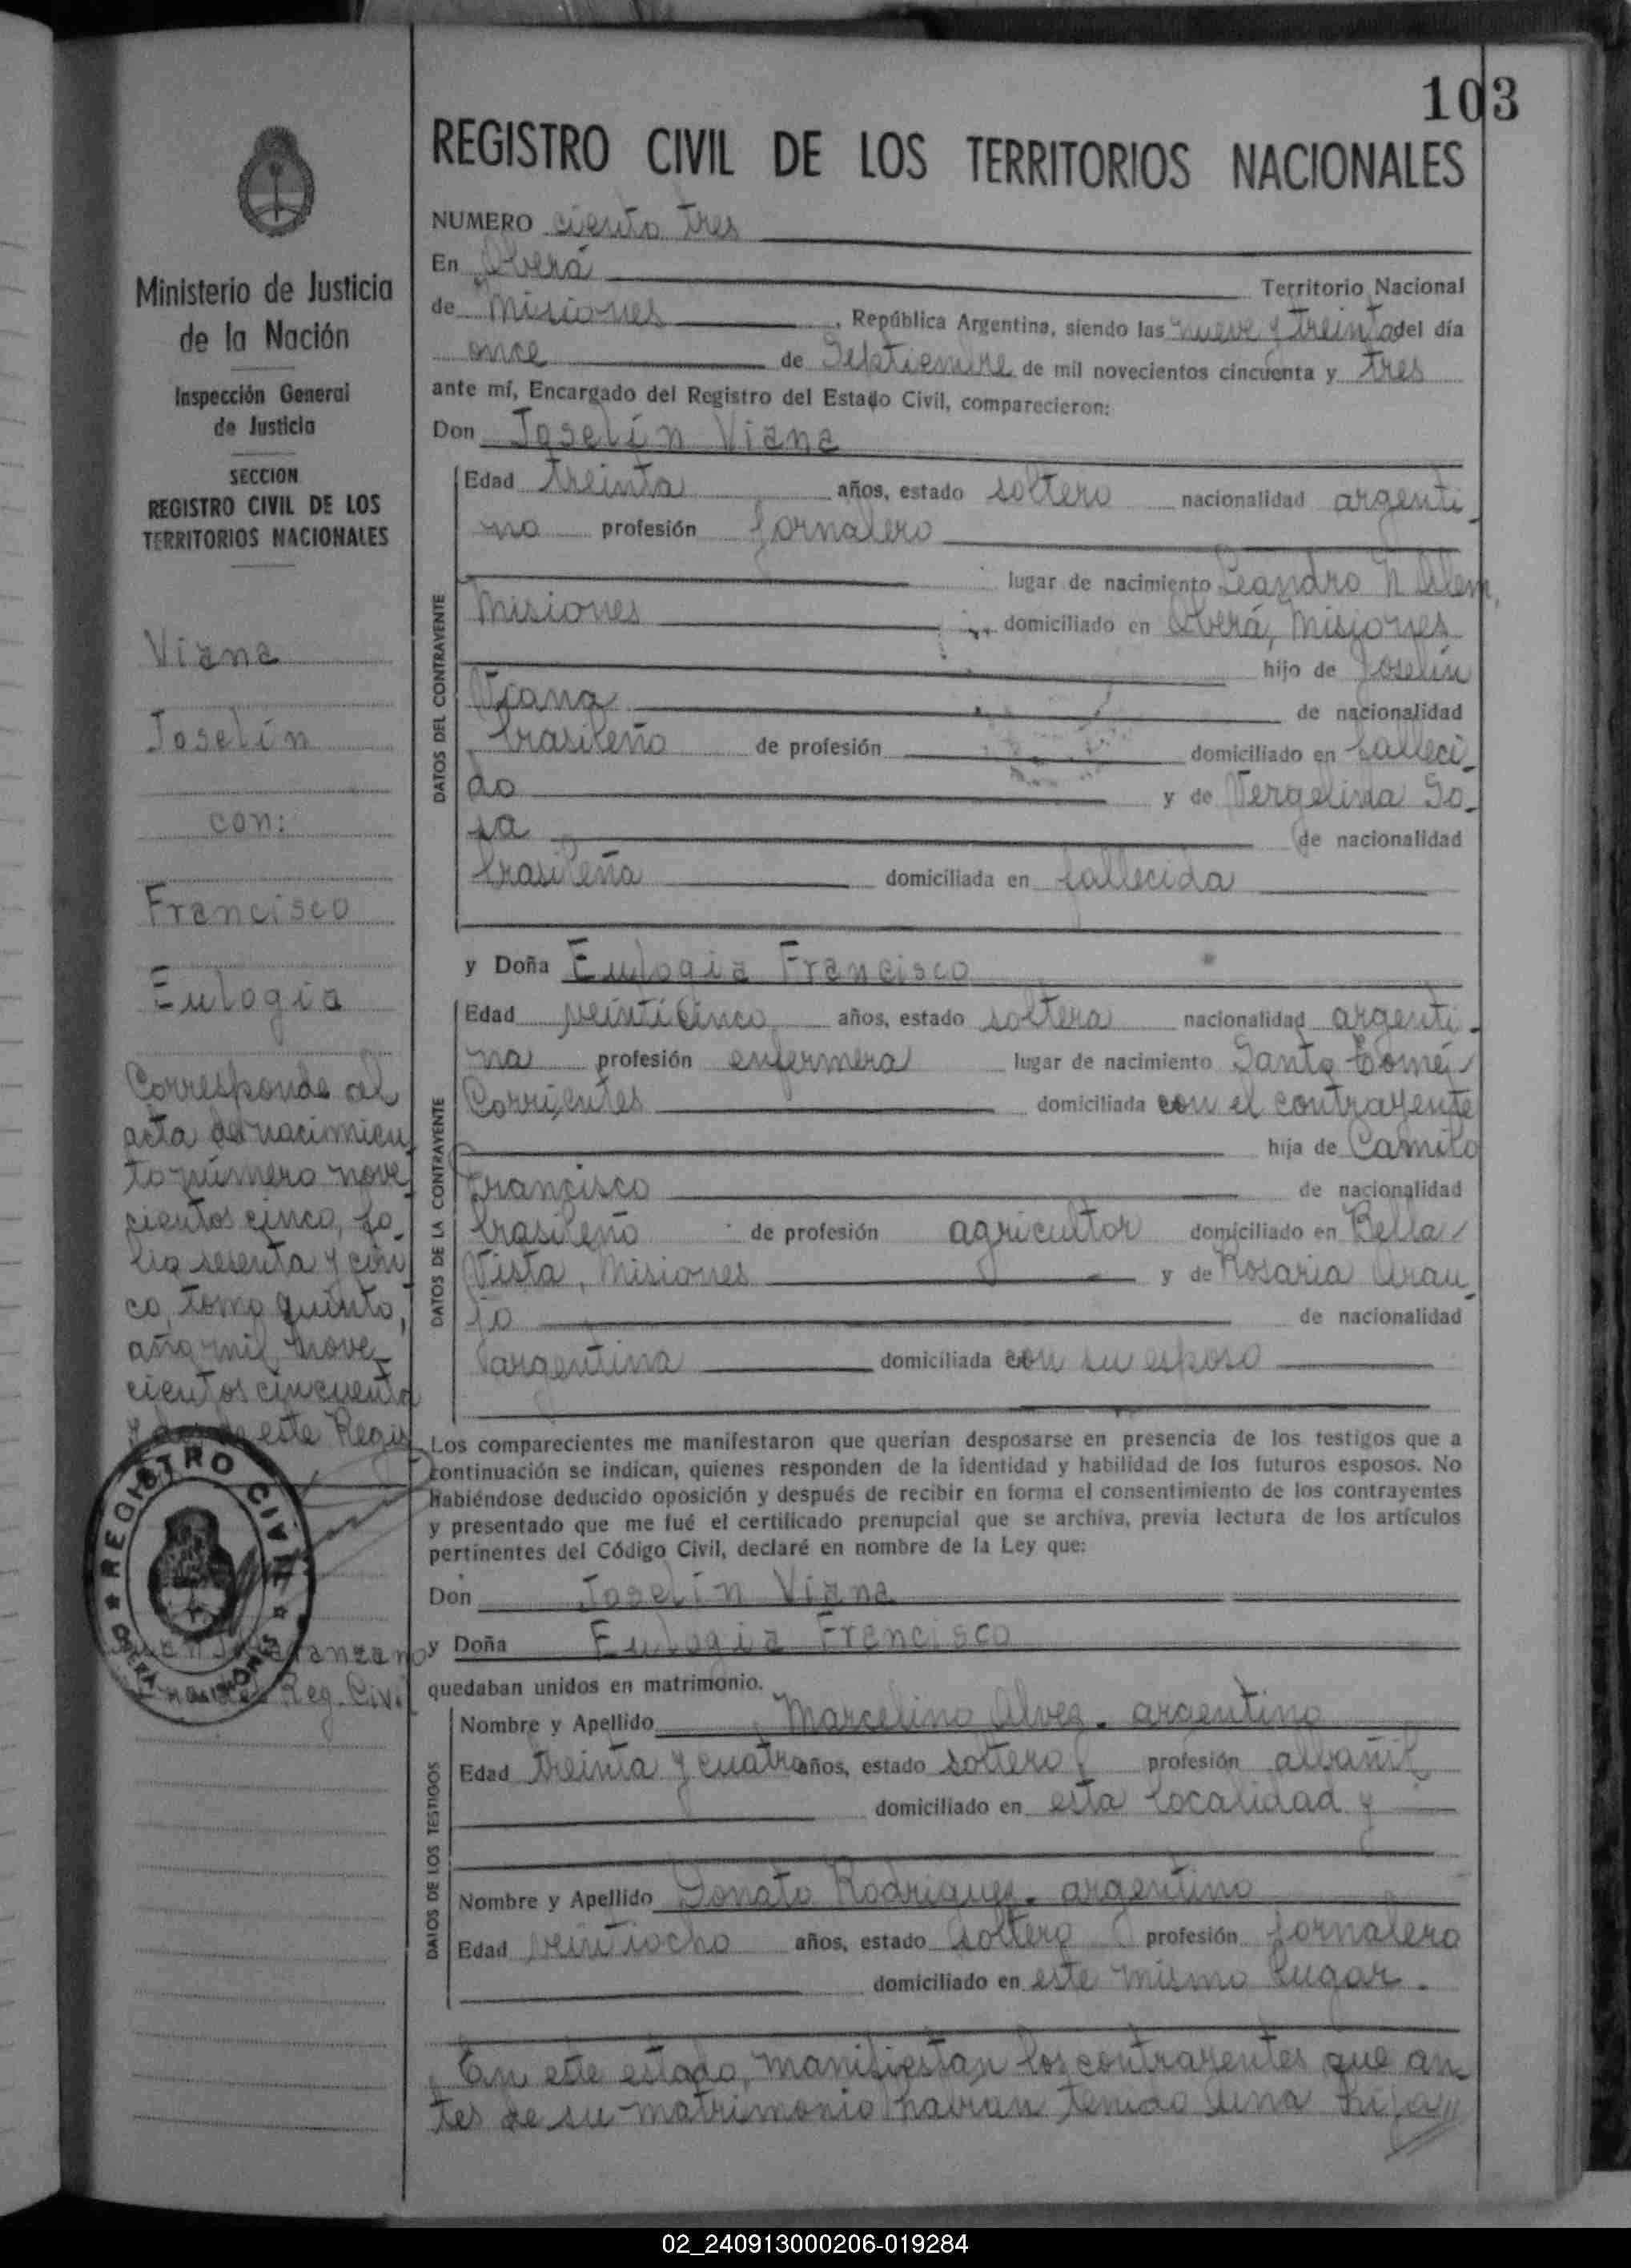 103
REGISTRO CIVIL DE LOS TERRITORIOS NACIONALES
NUMERO ciento tres
En Oberá Territorio Nacional
de Misiones, República Argentina, siendo las nueve y treinta del día
once de Septiembre de mil novecientos cincuenta y tres
ante mí, Encargado del Registro del Estado Civil, comparecieron:
Don Joselín Viana
DATOS DEL CONTRAYENTE
Edad treinta años, estado soltero nacionalidad argenti-
no profesión jornalero
lugar de nacimiento Leandro N Alem,
Misiones domiciliado en Oberá, Misiones
hijo de Joselín
Viana de nacionalidad
brasileño de profesión domiciliado en falleci-
do y de Vergelina So-
sa de nacionalidad
brasileña domiciliada en fallecida
y Doña Eulogia Francisco
DATOS DE LA CONTRAYENTE
Edad veinticinco años, estado soltera nacionalidad argenti-
na profesión enfermera lugar de nacimiento Santo Tomé,
Corrientes domiciliada con el contrayente
hija de Camilo
Francisco de nacionalidad
brasileño de profesión agricultor domiciliado en Bella
Vista, Misiones y de Rosaria Arau-
jo de nacionalidad
argentina domiciliada con su esposo
Los comparecientes me manifestaron que querían desposarse en presencia de los testigos que a
continuación se indican, quienes responden de la identidad y habilidad de los futuros esposos. No
habiéndose deducido oposición y después de recibir en forma el consentimiento de los contrayentes
y presentado que me fué el certificado prenupcial que se archiva, previa lectura de los artículos
pertinentes del Código Civil, declaré en nombre de la Ley que:
Don Joselín Viana
y Doña Eulogia Francisco
quedaban unidos en matrimonio.
DATOS DE LOS TESTIGOS
Nombre y Apellido Marcelino Alvez. argentino
Edad treinta y cuatro años, estado soltero profesión albañil
domiciliado en esta localidad y
Nombre y Apellido Donato Rodriguez. argentino
Edad veintiocho años, estado soltero profesión jornalero
domiciliado en este mismo lugar.
En este estado, manifiestan los contrayentes que an-
tes de su matrimonio habían tenido una hija
Ministerio de Justicia
de la Nación
Inspección General
de Justicia
SECCION
REGISTRO CIVIL DE LOS
TERRITORIOS NACIONALES
Viana
Joselín
con:
Francisco
Eulogia
Corresponde al
acta de nacimien
to número nove
cientos cinco, fo-
lio sesenta y cin
co, tomo quinto,
año mil nove-
cientos cincuenta
y este Regis
REGISTRO CIVIL
OBERA MISIONES
Reg. Civil
02_240913000206-019284